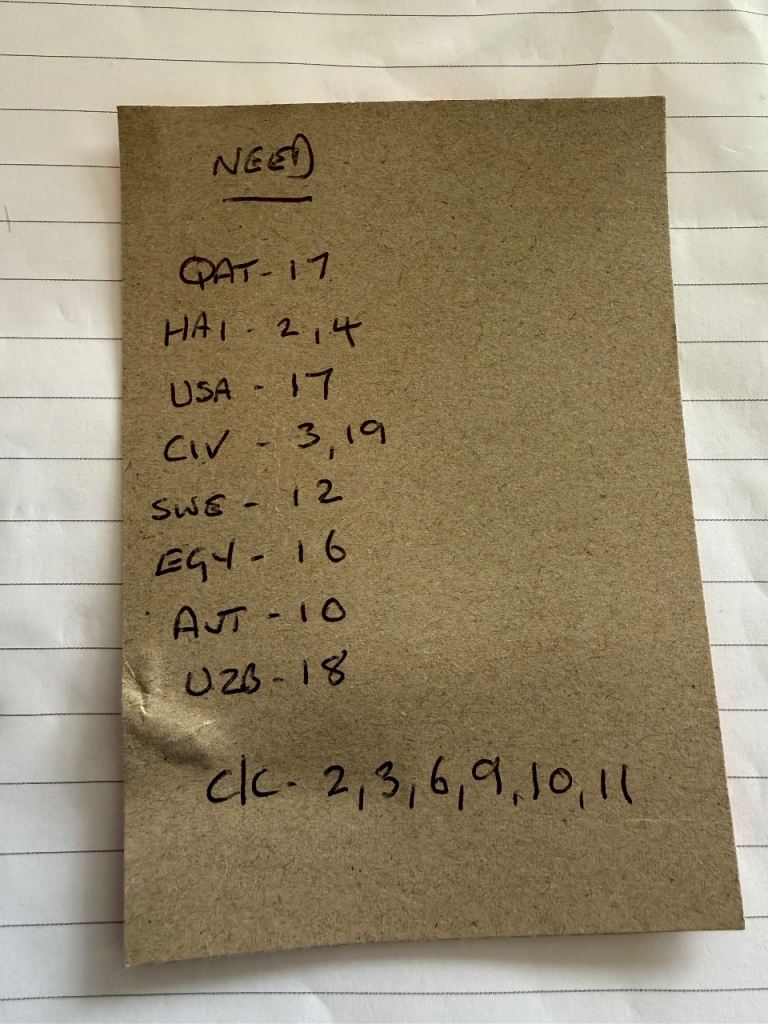 NEED
QAT - 17
HAI - 2, 4
USA - 17
CIV - 3, 19
SWE - 12
EGY - 16
AUT - 10
UZB - 18
C/C - 2, 3, 6, 9, 10, 11